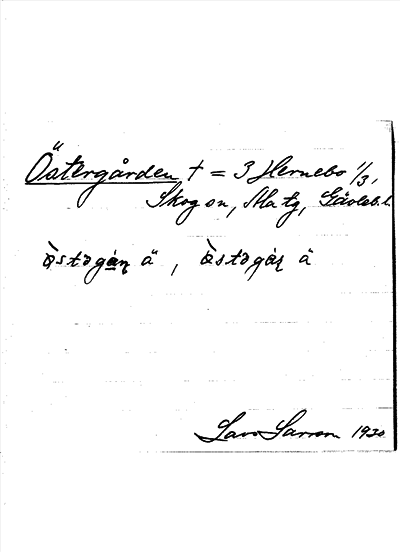 Östergården, † = 3 Hernebo 1/3,
Skog on, Ma tg, Gävleb. l.
östəgán ä, östəgáɳ ä
Lars Larsson 1930